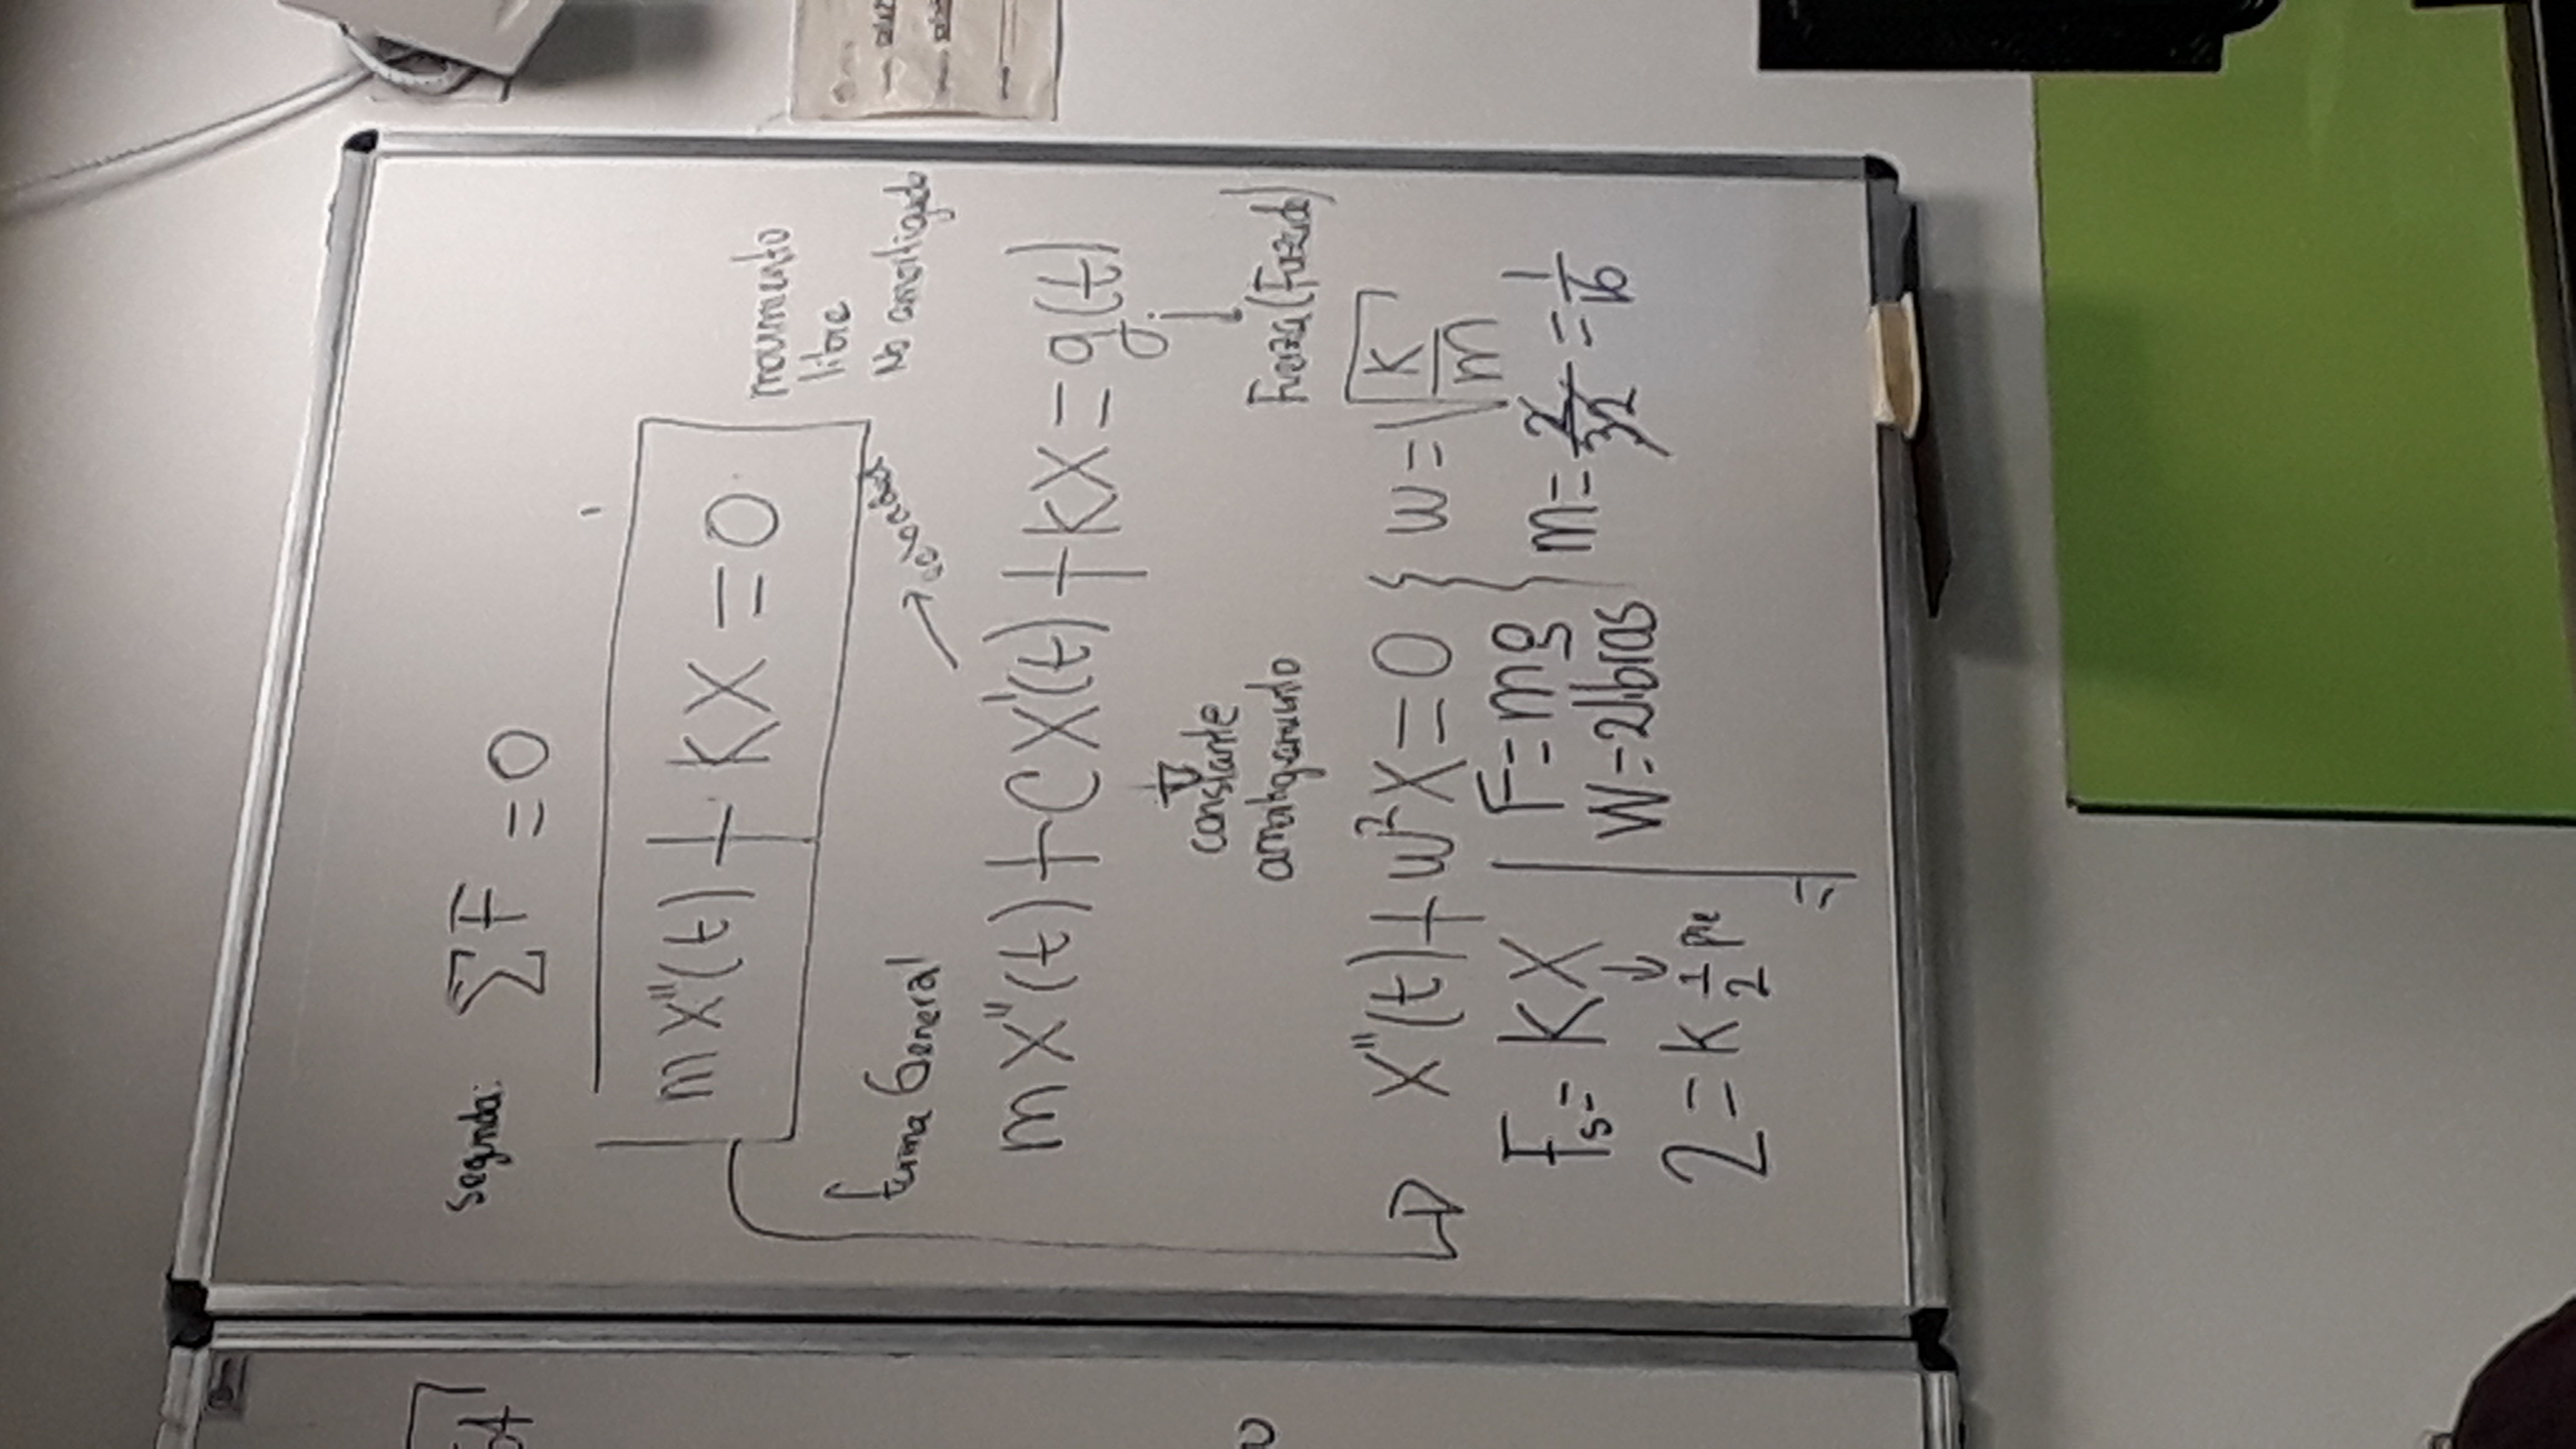 Segunda: ΣF = 0
mx"(t) + kx = 0
movimiento
libre
No amortiguado
forma General
velocidad
mx"(t) + cx'(t) + kx = g(t)
constante
amortiguamiento
Fuerza (Forzado)
x"(t) + w²x = 0 { w = √(k/m)
Fs = kx
F = mg
m = 2/32 = 1/16
W = 2 libras
2 = k 1/2 pie
=